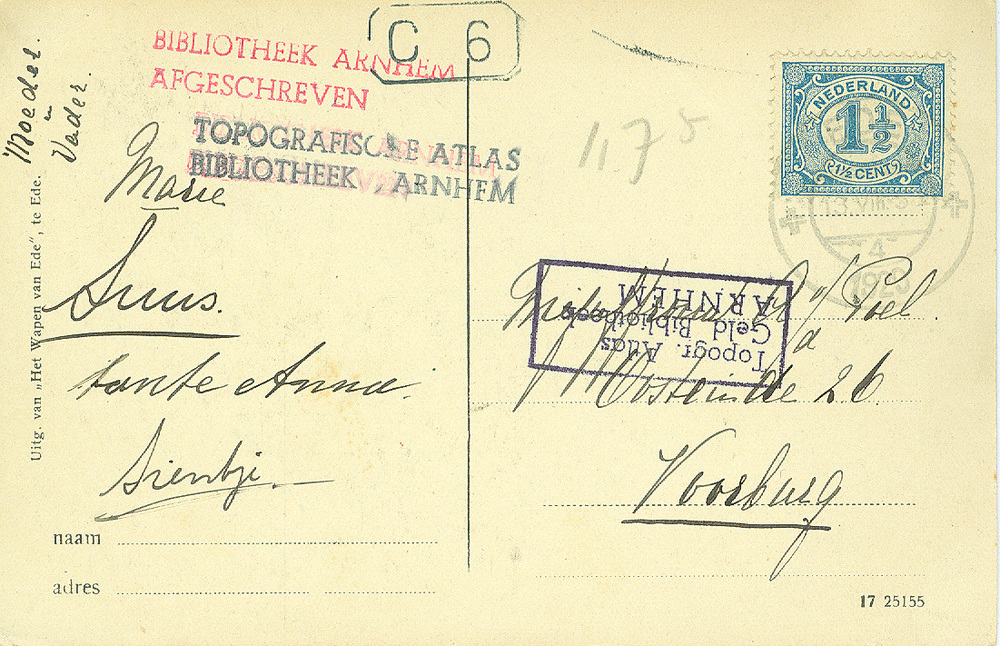 C 6
BIBLIOTHEEK ARNHEM
AFGESCHREVEN
TOPOGRAFISCHE ATLAS
BIBLIOTHEEK, ARNHEM
Moeder
Vader
Uitg. van „Het Wapen van Ede”, te Ede.
Marie
Suus.
tante Anna.
Sientje.
naam
adres
1,75
NEDERLAND
1 1/2
1½ CENT
13.VIII
4
v/d Poel
Oosteinde 26.
Voorburg
Topogr. Atlas
Geld. Bibliotheek
ARNHEM
17 25155